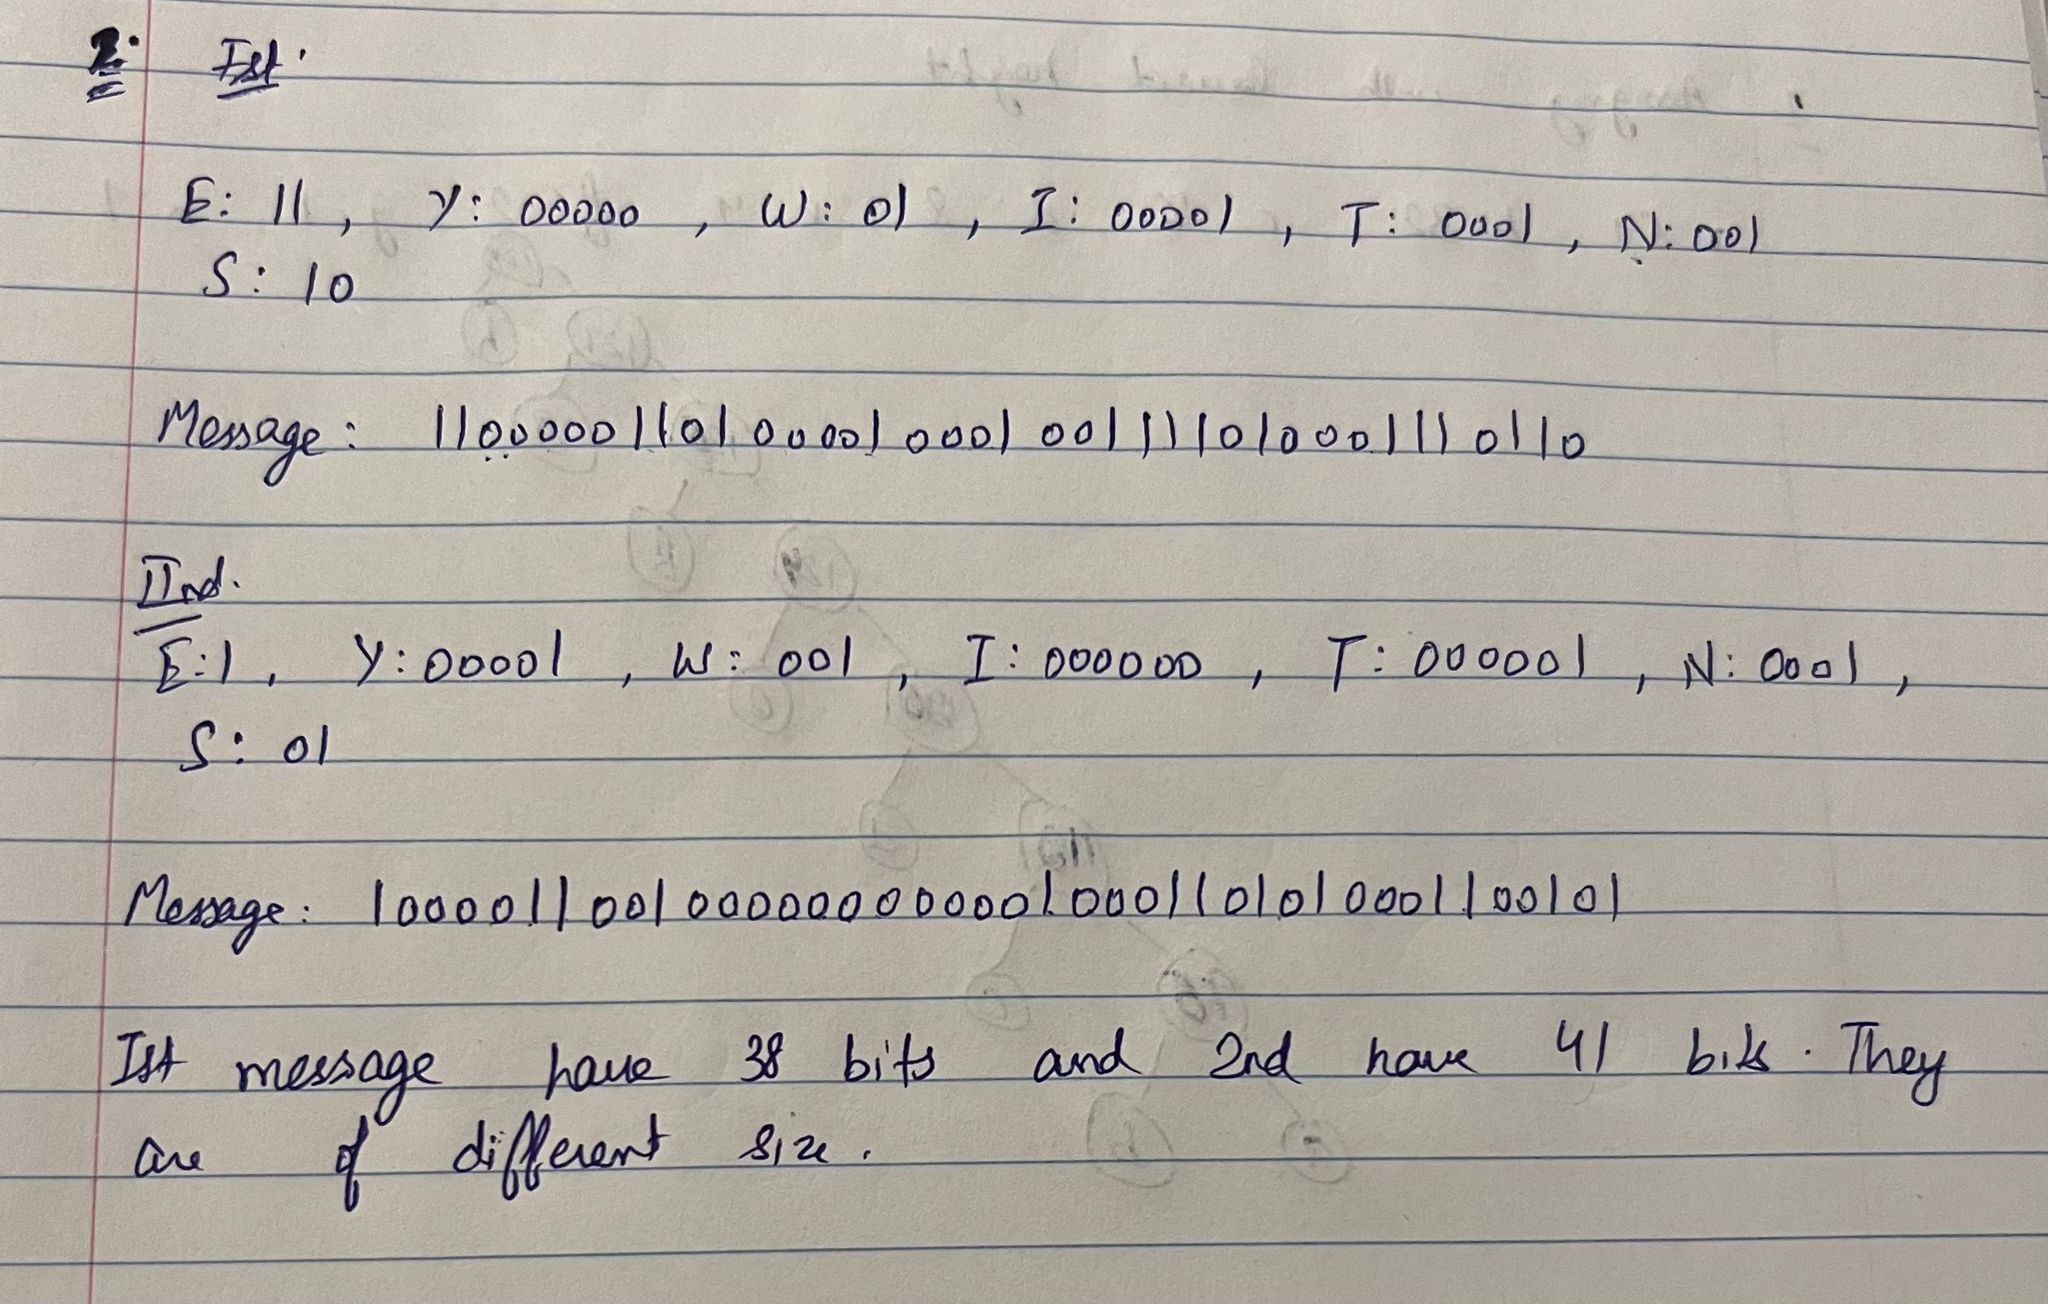 2. Ist.
E: 11, Y: 00000, W: 01, I: 00001, T: 0001, N: 001
S: 10
Message: 11000001101000010001001111010001110110
IInd.
E:1, Y:00001, W: 001, I: 000000, T: 000001, N: 0001,
S: 01
Message: 10000110010000000000010001101010001100101
Ist message have 38 bits and 2nd have 41 bits. They
are of different size.